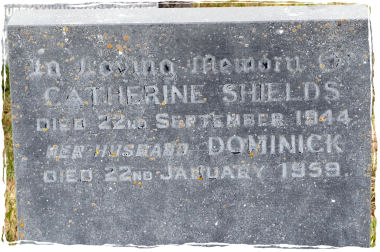 In Loving Memory Of
CATHERINE SHIELDS
DIED 22ND SEPTEMBER 1944
HER HUSBAND DOMINICK
DIED 22ND JANUARY 1959.